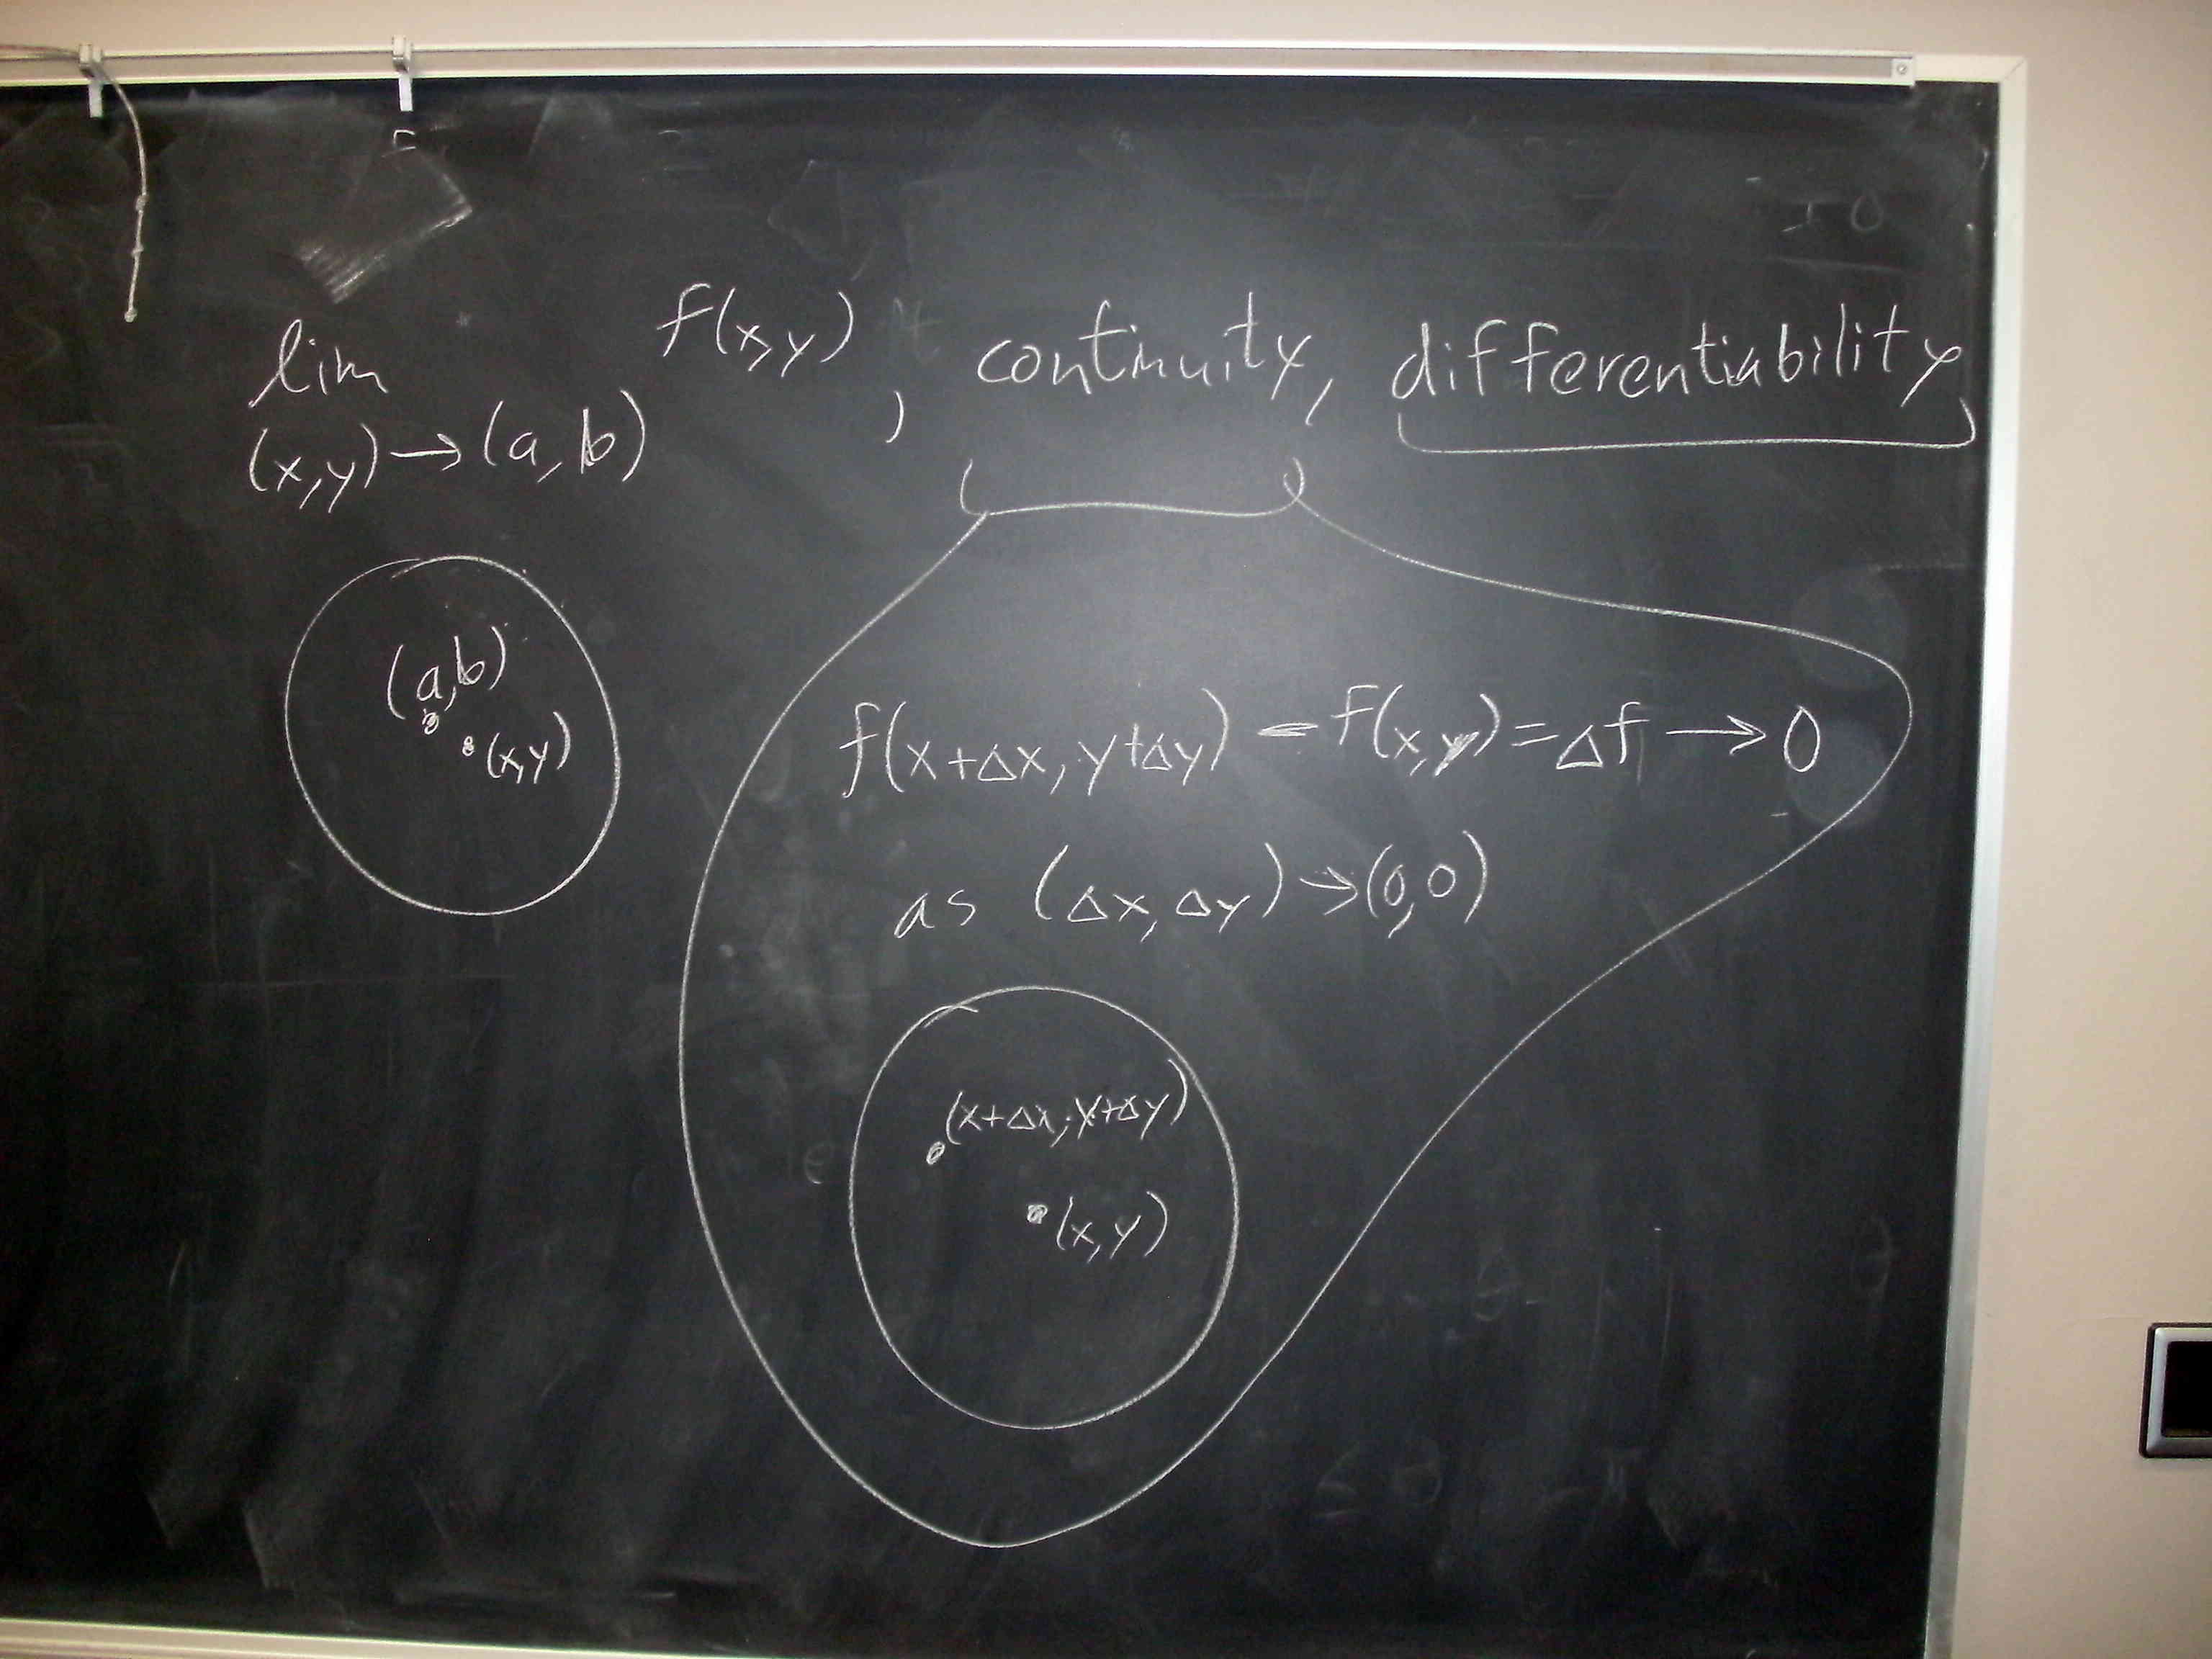 lim f(x,y), continuity, differentiability
(x,y)→(a,b)
(a,b)
(x,y)
f(x+Δx, y+Δy) - f(x,y) = Δf → 0
as (Δx, Δy) → (0,0)
(x+Δx, y+Δy)
(x,y)